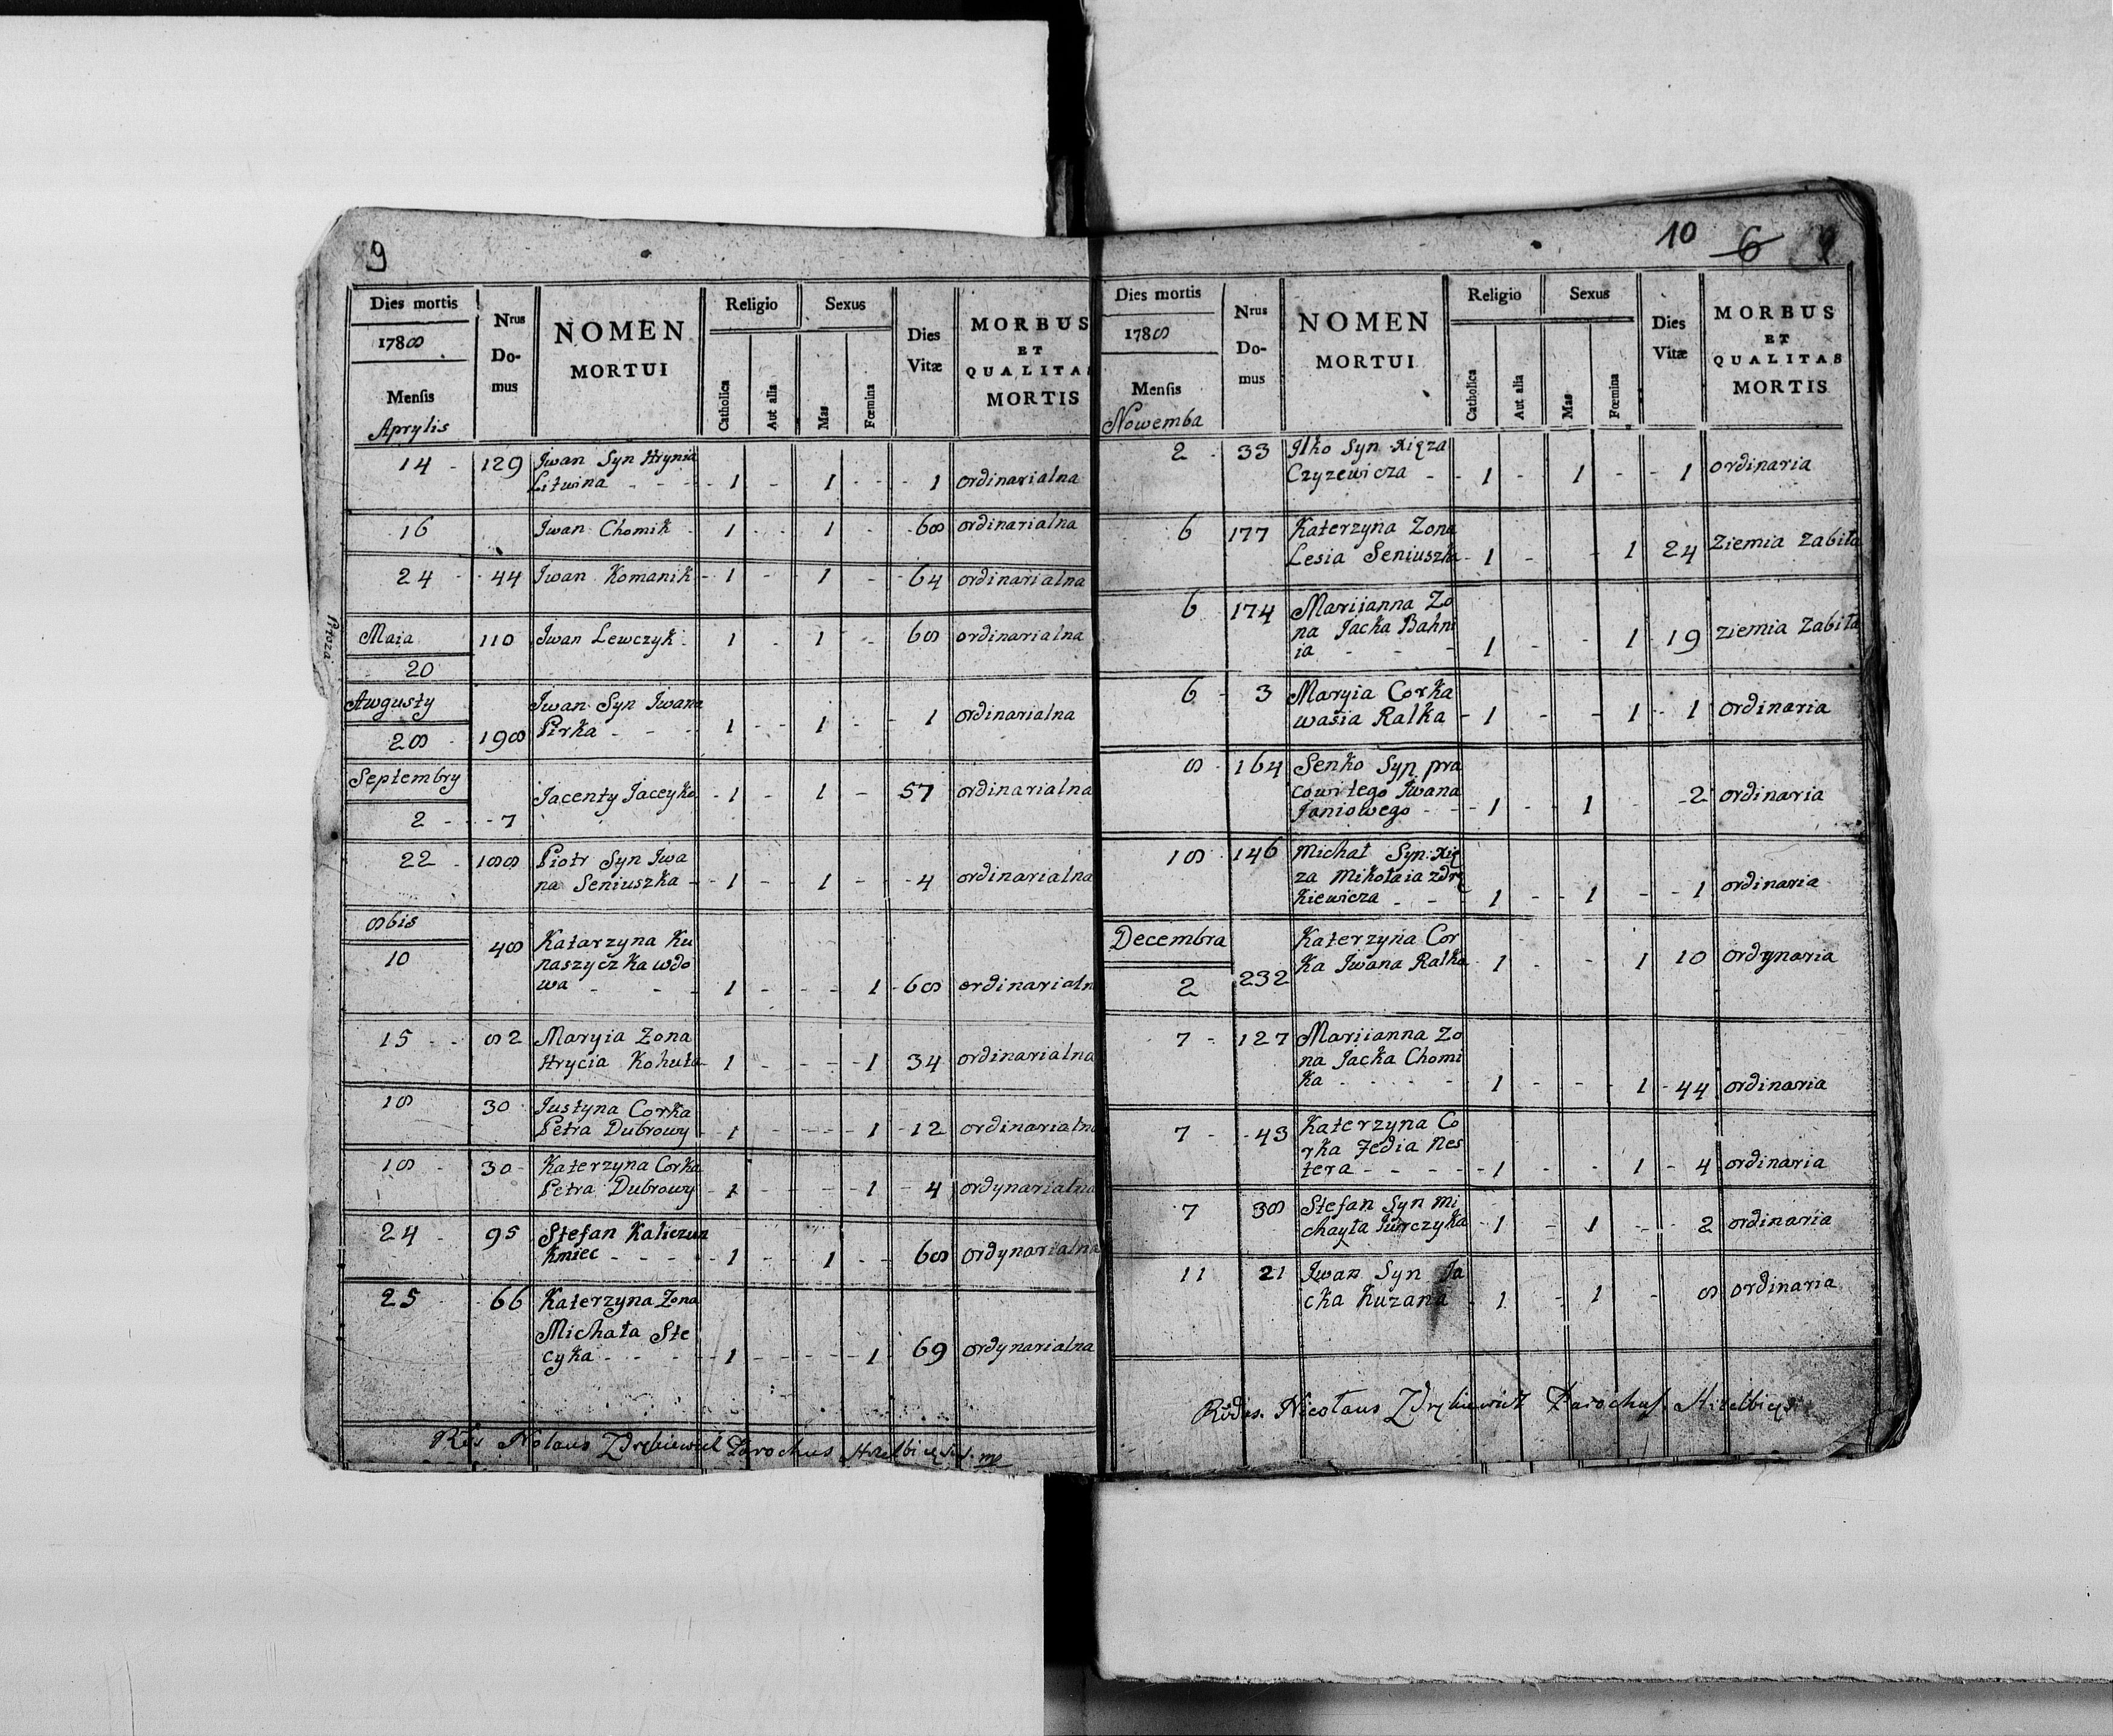 9
Dies mortis
1788
Mensis
Aprylis
Nrus
Do-
mus
NOMEN
MORTUI
Religio
Catholica
Aut alia
Sexus
Mas
Fœmina
Dies
Vitæ
MORBUS
ET
QUALITAS
MORTIS
14 - 129 Jwan Syn Hrynia
Litwina - - - 1 - 1 - - 1 ordinarialna
16 Jwan Chomik - 1 - 1 - 68 ordinarialna
24 - 44 Jwan Komanik - 1 - 1 - 64 ordinarialna
Maia 110 Jwan Lewczyk 1 - 1 - 68 ordinarialna
20
Awgusty Jwan Syn Jwana
28 - 198 Pirka - - - 1 - - 1 - - 1 ordinarialna
Septembry
Jacenty Jaceyko - 1 - 1 - 57 ordinarialna
2 - - 7
22 - 188 Piotr Syn Jwa
na Seniuszka - - 1 - 1 - - 4 ordinarialna
8bis
10 48 Katarzyna Ku
naszyczka wdo
wa - - - 1 - - - 1 - 68 ordinarialn
15 - - 82 Maryia Zona
Hrycia Kohuta 1 - - - 1 34 ordinarialna
18 30 Justyna Corka
Petra Dubrowy - 1 - - - 1 - 12 ordinarialna
18 - 30 - Katerzyna Corka
Petra Dubrowy - 1 - - - 1 - 4 ordynarialna
24 - 95 Stefan Kaliczun
Kmiec - - - - 1 - 1 - - 68 ordynarialna
25 - 66 Katerzyna Zona
Michała Ste
cyka - - - 1 - - - 1 - 69 ordynarialna
Parochus
10 6
Dies mortis
1788
Mensis
Nowemba
Nrus
Do-
mus
NOMEN
MORTUI
Religio
Catholica
Aut alia
Sexus
Mas
Fœmina
Dies
Vitæ
MORBUS
ET
QUALITAS
MORTIS
2 - 33 Ilko Syn Xięza
Czyzewicza - - 1 - 1 - - 1 ordinaria
6 177 Katerzyna Zona
Lesia Seniuszka - 1 - - 1 24 Ziemia Zabiła
6 - 174 Mariianna Zo
na Jacka Bahn
ia - - - 1 - - 1 - 19 ziemia Zabiła
6 - 3 Maryia Corka
wasia Ralka - 1 - - 1 - 1 ordinaria
8 - 164 Senko Syn pra
cowitego Jwana
Janiowego - - - 1 - - 1 - 2 ordinaria
18 - 146 Michał Syn Xię
za Mikołaia Zdrę
kiewicza - - - 1 - - 1 - - 1 ordinaria
Decembra Katerzyna Cor
ka Jwana Ralka 1 - - 1 10 ordynaria
2 232
7 - 127 Mariianna Zo
na Jacka Chomi
ka - - - - 1 - - - 1 - 44 ordinaria
7 - - 43 Katerzyna Co
rka Fedia Nes
tera - - - - 1 - - 1 - 4 ordinaria
7 38 Stefan Syn Mi
chayła Jurczyka - 1 - 1 - - 2 ordinaria
11 21 Jwan Syn Ja
cka Kuzana - 1 - 1 - 8 ordinaria
Nicolaus Parochus